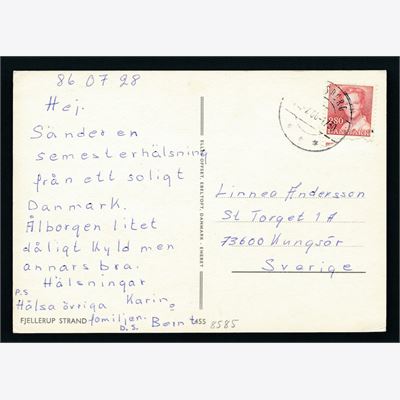 86 07 28
Hej.
Sänder en
semesterhälsning
från ett soligt
Danmark.
Ålborgen litet
dåligt kyld men
annars bra.
Hälsningar
P.S Karin o
Hälsa övriga
familjen. Bernt
D.S.
FJELLERUP STRAND
455
8585
ELLE OFFSET, EBELTOFT, DANMARK - ENERET
2.80
DANMARK
Linnea Andersson
St Torget 1 A
73600 Kungsör
Sverige